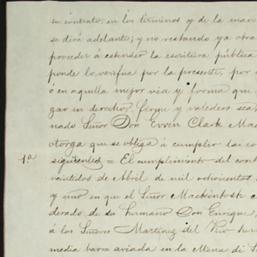 su contrato: en los términos y de la man
se dirá adelante; y no restando ya otra
proceder á estender la escritura pública
ponde lo verifica por la presente, por
ó en aquella mejor via y forma que
gar en derecho firme y valedero sea,
nado Señor Don Erven Clark Mac
otorga que se obliga á cumplir las co
siguientes = El cumplimiento del cont
1ª
veintidos de Abril de mil ochocientos
y uno en que el Señor Mackintosh c
derado de su hermano Don Enrique,
á los Señores Martinez del Rio her
media barra aviada en la Mina de